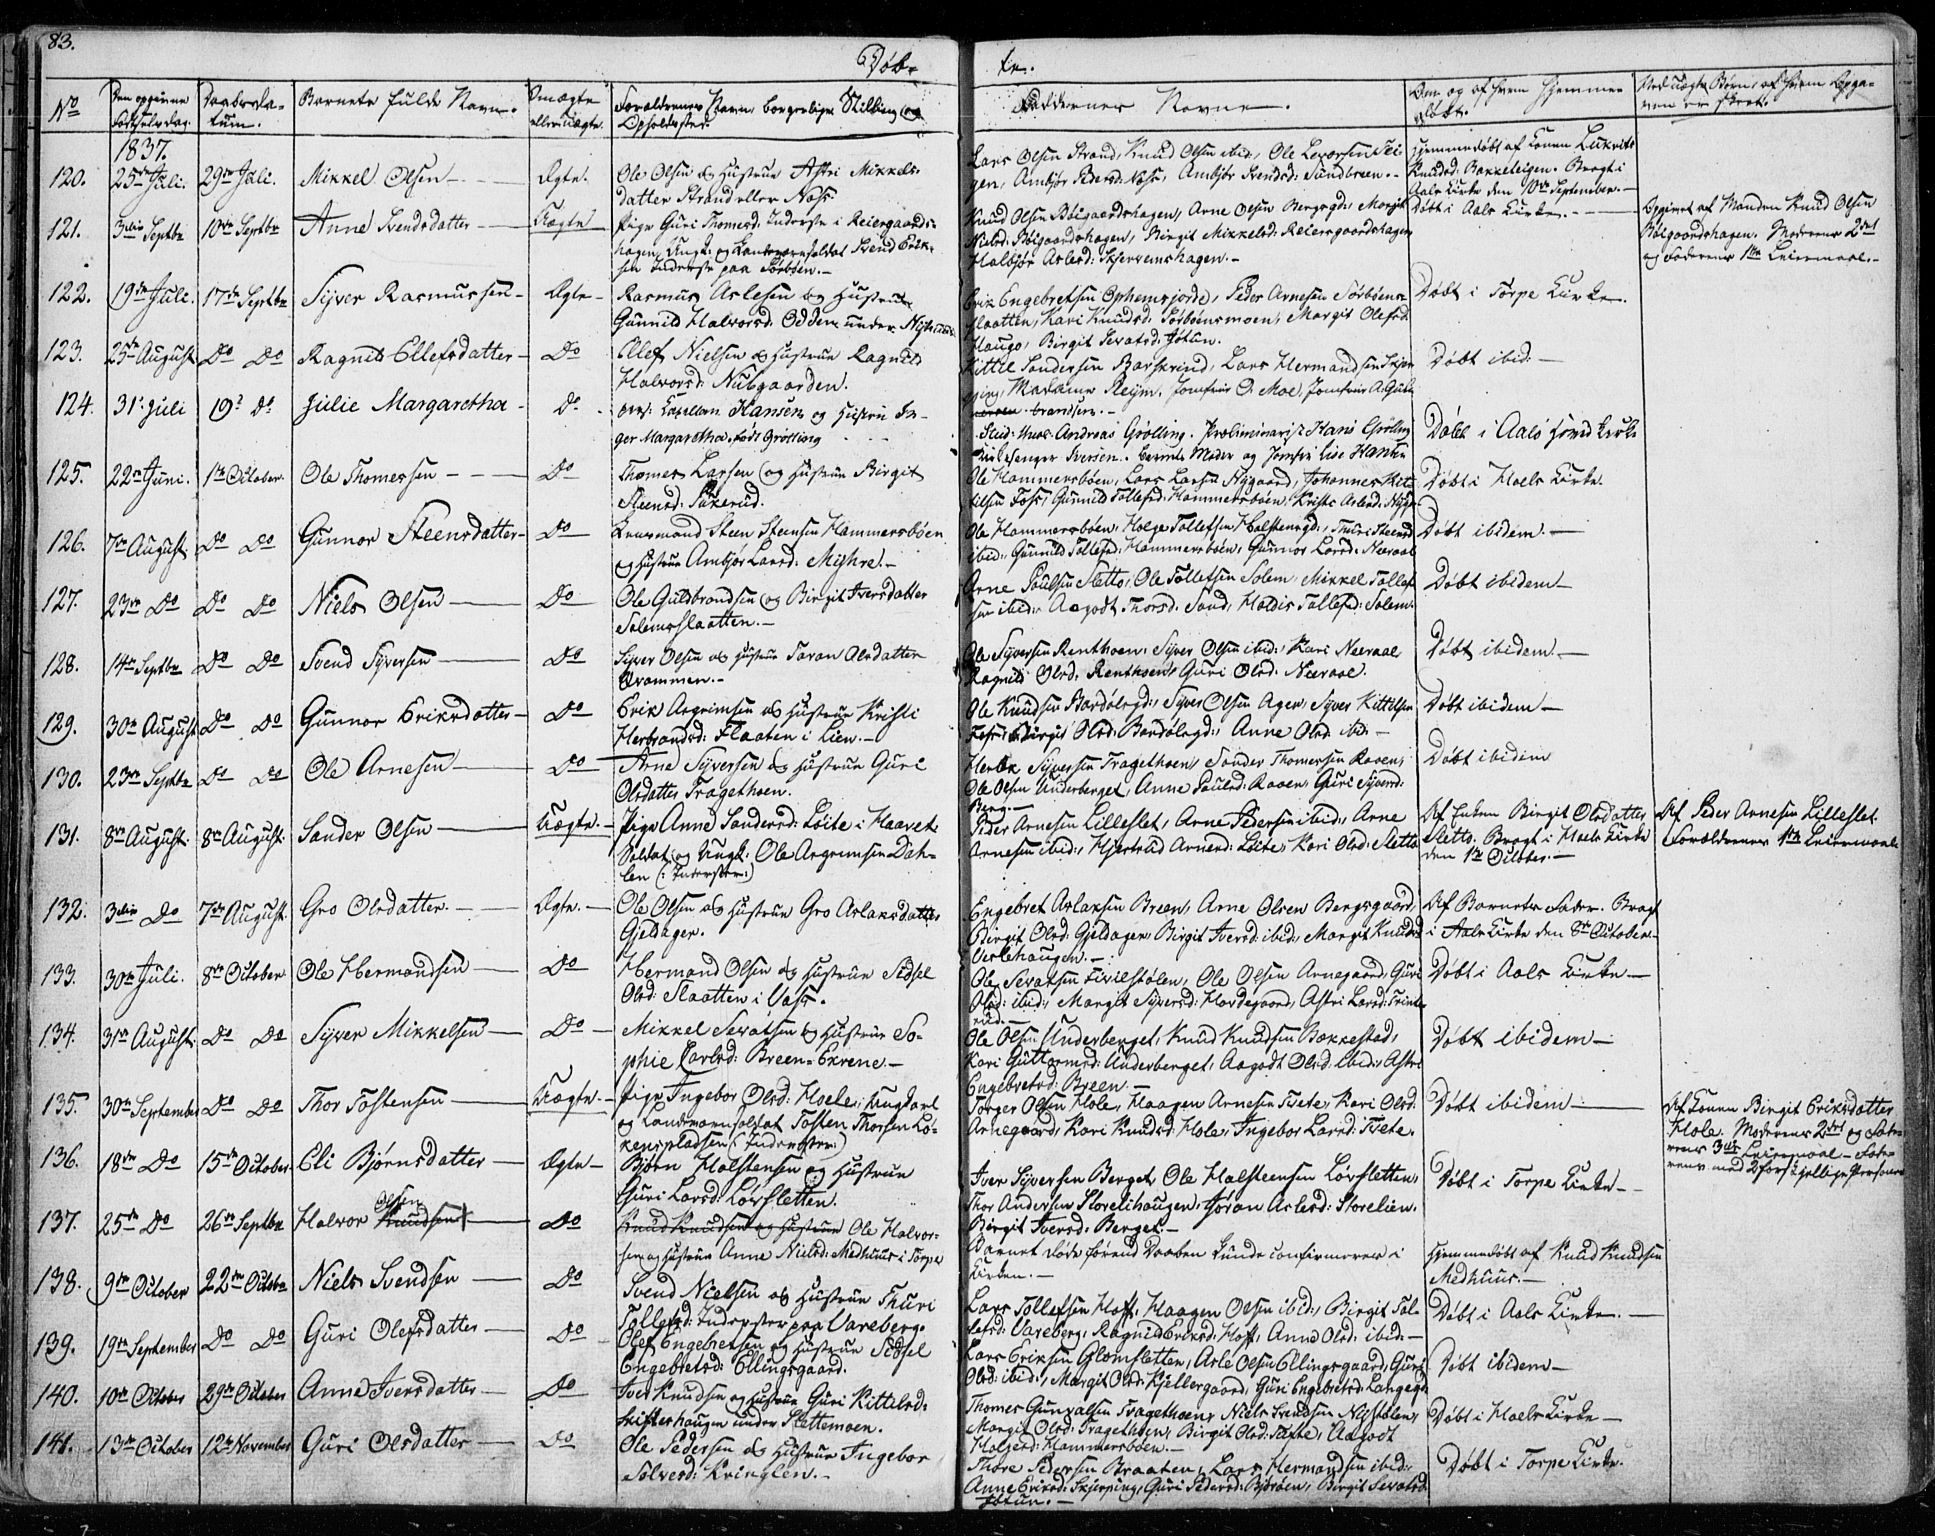 83.
Døb-
te.
No
Den opgivne Fødselsdag.
Daabsda-
tum.
Barnets fulde Navn.
Om ægte
eller uægte.
Forældrenes Navn, borgerlige Stilling og
Opholdssted.
Faddernes Navne.
Om og af hvem hjemme-
døbt.
1837.
120. 25de Juli. 29de Juli. Mikkel Olsen Ægte. Ole Olsen og Hustrue Astri Mikkels-
datter Strand eller Næss
Lars Olsen Strand, Knud Olsen ibid:, Ole
Ambjør Pedersd: Næss, Ambjør Svendsd: Sundbreen.
Hjemmedøbt af Konen
Knudsd: Bakketeigen. Bragt i
Aals Kirke den 10de September.
121. 3die Septbr 10de Septbr Anne Svendsdatter Uægte Pige Guri Thomesd: Inderste i Reiersgaards-
hagen, Ungk: og Landeværnsoldat Svend Erik-
sen Inderste paa Sørbøen.
Knud Olsen Bøigaardshagen, Arne Olsen Bergsgd:, Margit
Nielsd: Bøigaardshagen, Birgit Mikkelsd: Reiersgaardshagen
Halbjør Aslesd: Skjervemshagen.
Døbt i Aals Kirke.
Opgivet af Manden Knud Olsen
Bøigaardshagen. Moderens 2det
og Faderens 1ste Leiermaal.
122. 19de Juli. 17de Septbr Syver Rasmussen Ægte Rasmus Aslesen og Hustrue
Gunnild Halvorsd: Odden under
Erik Engebretsen Ophemsjorde, Peder Arnesen Sørbøens-
slaatten, Kari Knudsd: Sørbøensmoen, Margit Olefsd:
Haugo, Birgit Sevatsd: Jøtun.
Døbt i Torpe Kirke.
123. 25de August Do Do Ragnild Ellefsdatter Do Ellef Nielsen og Hustrue Ragnild
Halvorsd: Nubgaarden.
Kittil Sandersen Barskrind, Lars Hermandsen Skjer-
ping, Madame Reijm. Jomfrue O. Moe, Jomfrue A. Gul-
brandsen.
Døbt ibid:
124. 31. Juli 19de Do Julie Margaretha Do pers: Capellan Hansen og Hustrue In-
ger Margaretha, født Grølling
Stud: theol: Andreas Grølling. Præliminarist Hans Grølling
Kirkesanger Iversen. Barnets Moder og Jomfrue Lise Hansen
Døbt i Aals Hoved Kirke
125. 22de Juni. 1ste October Ole Thomessen Do Thomes Larsen og Hustrue Birgit
Steensd:
Ole Hammersbøen, Lars Larsen Nygaard, Johannes Kit-
tilsen Foss, Gunnild Tollefsd: Hammersbøen,
Døbt i Hoels Kirke.
126. 7de August Do Do Gunnor Steensdatter Do Steen Steensen Hammersbøen
og Hustrue Ambjør Larsd: Myhre.
Ole Hammersbøen, Helge Tollefsen Halstensgd:, Thuri Steensd:
ibid:, Gunnild Tollefsd: Hammersbøen, Gunnor Larsd: Næraal
Døbt ibidem.
127. 23de Do Do Do Niels Olsen Do Ole Guldbrandsen og Birgit Iversdatter
Solemsslaatten.
Arne Paulsen Sletto, Ole Tollefsen Solem, Mikkel Tollef-
sen ibid:, Aagodt Thorsd: Sand, Haldis Tollefsd: Solem.
Døbt ibidem
128. 14de Septbr Do Do Svend Syversen Do Syver Olsen og Hustrue Jøran Olsdatter
Ole Syversen Renthoen, Syver Olsen ibid:, Kari Næraal
Ragnild Olsd: Renthoen, Guri Olsd: Næraal.
Døbt ibidem
129. 30te August Do Do Gunnor Eriksdatter Do Erik Asgrimsen og Hustrue Kristi
Herbrandsd: Flaaten i Lien.
Ole Knudsen Bardølsgd:, Syver Olsen Ager, Syver Kittilsen
Foss, Birgit Olsd: Bardølsgd:, Anne Olsd: ibid:
Døbt ibidem
130. 23de Septbr Do Do Ole Arnesen Do Arne Syversen og Hustrue Guri
Olsdatter Tragethoen.
Syversen Tragethoen, Sander Thomesen Raaen,
Ole Olsen Underberget, Anne Paulsd: Raaen, Guri Syversd:
Berg.
Døbt ibidem
131. 8de August. 8de August. Sander Olsen Uægte. Pige Anne Sandersd: Løite i Haavet.
Soldat og Ungk: Ole Asgrimsen Dah-
len (: Inderster:)
Peder Arnesen Lilleslet, Arne Pedersen ibid:, Arne
Arnesen ibid:, Hjertrud Arnesd: Løite, Kari Olsd: Sletto
Af Enken Birgit Olsdatter
Sletto. Bragt i Hoels Kirke
den 1ste October.
Af Peder Arnesen Lilleslet.
Forældrenes 1ste Leiermaal
132. 3die Do 7de August. Gro Olsdatter. Ægte. Ole Olsen og Hustrue Gro Aslaksdatter
Gjeldager.
Engebret Aslaksen Breen, Arne Olsen Bergsgaard,
Birgit Olsd: Gjeldager, Birgit Iversd: ibid:, Margit Knudsd:
Veslehaugen.
Af Barnets Fader. Bragt
i Aals Kirke den 8de October.
133. 30te Juli. 8de October Ole Hermandsen Do Hermand Olsen og Hustrue Sidsel
Olsd: Slaatten i Vats.
Ole Sevatsen Ole Olsen Arnegaard, Guri
Olsd: ibid:, Margit Syversd: Hordegaard, Astri Larsd:
Døbt i Aals Kirke
134. 31te August. Do Do Syver Mikkelsen Do Mikkel Sevatsen og Hustrue So-
phie Carlsd: Breen-Ekrene.
Ole Olsen Underberget, Knud Knudsen Bakkestad,
Kari Guttormsd: Underberget, Aagodt Olsd: ibid:, Astri
Engebretsd: Breen.
Døbt ibidem
135. 30te September Do Do Thor Tostensen Uægte. Pige Ingebor Olsd: Hoele, Ungkarl
og Landeværnsoldat Tosten Thorsen Lø-
kenspladsen (Inderster:)
Torger Olsen Hole, Haagen Arnesen Tvete, Kari Olsd:
Arnegaard, Kari Knudsd: Hole, Ingebor Larsd: Tvete.
Døbt ibidem
Af Konen Birgit Eriksdatter
Hole. Moderens 2det og Fade-
rens 3die Leiermaal. Fade-
rens med 2 forskjellige Personer
136. 18de Do 15de October Eli Bjørnsdatter Ægte Bjørn Halstensen og Hustrue
Guri Larsd: Løvsletten.
Iver Syversen Berget, Ole Halsteensen Løvsletten,
Thor Andersen Storelihaugen, Jøran Aslesd: Storelien,
Birgit Iversd: Berget.
Døbt i Torpe Kirke
137. 25de Do 26de Septbr Halvor Knudsen Olsen Do Knud Knudsen og Hustrue Ole Halvor-
sen og Hustrue Anne Nielsd: Medhuus i Torpe
Barnet døde førend Daaben kunde confirmeres i
Kirken.
Hjemmedøbt af Knud Knudsen
Medhuus.
138. 9de October 22de Octobr Niels Svendsen Do Svend Nielsen og Hustrue Thuri
Tollefsd: Inderster paa Vareberg.
Lars Tollefsen Hoff, Haagen Olsen ibid:, Birgit Tol-
lefsd: Vareberg, Ragnild Eriksd: Hoff, Anne Olsd: ibid:
Døbt i Aals Kirke.
139. 19de September Do Do Guri Olefsdatter Do Olef Engebretsen og Hustrue Sidsel
Engebretsd: Ellingsgaard.
Lars Eriksen Glomsletten, Asle Olsen Ellingsgaard, Guri
Olsd: ibid:, Margit Olsd: Kjellergaard, Guri Engebretsd: Langegd:
Døbt ibidem
140. 10de October 29de October Anne Iversdatter Do Iver Knudsen og Hustrue Guri Kittilsd:
Skiftershaugen under Slettemoen.
Thomes Gunvalsen Tragethoen, Niels Svendsen Nystølen,
Margit Olsd: Tragethoen, Birgit Olsd: Tufte, Aagodt
Holgersd: Hammersbøen.
Døbt i Hoels Kirke
141. 13de October 12te November Guri Olsdatter Do Ole Pedersen og Hustrue Ingebor
Solversd: Kringlen.
Thore Pedersen Braaten, Lars Hermandsen ibid:,
Anne Eriksd: Skjerping, Guri Pedersd: Bjørøen, Birgit Sevatsd:
Jøtun.
Døbt i Torpe Kirke.